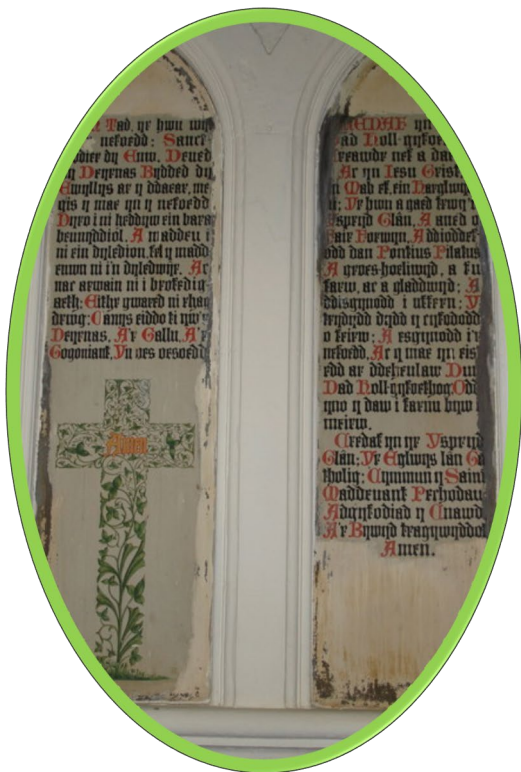 Tad, yr hwn wyt
nefoedd: Sanct-
eiddier dy Enw. Deued
dy Deyrnas. Bydded dy
Ewyllys ar y ddaear, me-
gis y mae yn y nefoedd
Dyro i ni heddyw ein bara
beunyddiol. A maddeu i
ni ein dyledion, fel y madd-
euwn ni i'n dyledwyr. Ac
nac arwain ni i brofedig-
aeth; Eithr gwared ni rhag
drwg: Canys eiddo ti yw'r
Deyrnas, A'r Gallu, A'r
Gogoniant, Yn oes oesoedd
Amen
CREDAF yn
Dad Holl-gyfoe
Creawdr nef a dae
Ac yn Iesu Grist
Mab ef, ein Harglwy
ni; Yr hwn a gaed trwy'r
Yspryd Glân, A aned o
Fair Forwyn, A ddioddef-
odd dan Pontius Pilatus
A groes-hoeliwyd, a fu
farw, ac a gladdwyd; A
ddisgynnodd i uffern; Y
trydydd dydd y cyfododd
o feirw; A esgynnodd i'r
nefoedd, Ac y mae yn eis
edd ar ddeheulaw Duw
Dad Holl-gyfoethog; Odd
yno y daw i farnu byw
meirw.
Credaf yn yr Yspryd
Glân; Yr Eglwys lân Ga
tholig; Cymmun y Saint
Maddeuant Pechodau
Adgyfodiad y Cnawd
A'r Bywyd tragywyddol
Amen.